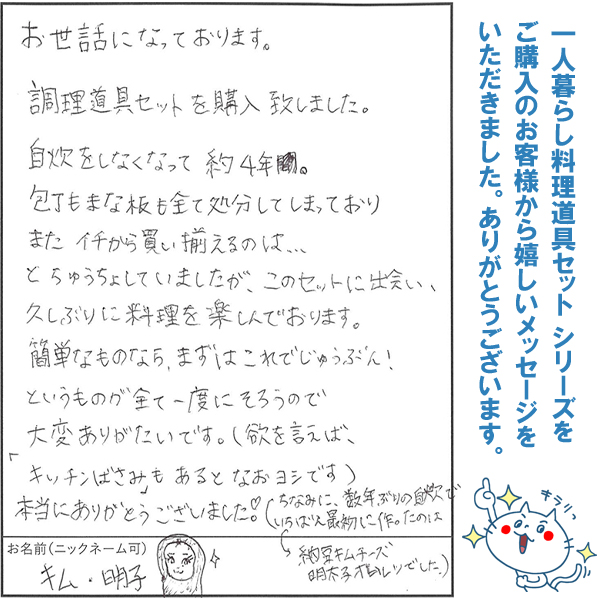 一人暮らし料理道具セット シリーズを
ご購入のお客様から嬉しいメッセージを
いただきました。ありがとうございます。
キラリっ
お世話になっております。
調理道具セットを購入致しました。
自炊をしなくなって 約4年間。
包丁もまな板も全て処分してしまっており
また イチから買い揃えるのは…
とちゅうちょしていましたが、このセットに出会い、
久しぶりに料理を楽しんでおります。
簡単なものなら、まずはこれでじゅうぶん!
というものが全て一度にそろうので
大変ありがたいです。(欲を言えば、
「キッチンばさみ」もあるとなおヨシです)
本当にありがとうございました♡
(ちなみに、数年ぶりの自炊で
いちばん最初に作ったのは
納豆キムチーズ
明太子オムレツでした。)
お名前(ニックネーム可)
キム・明子